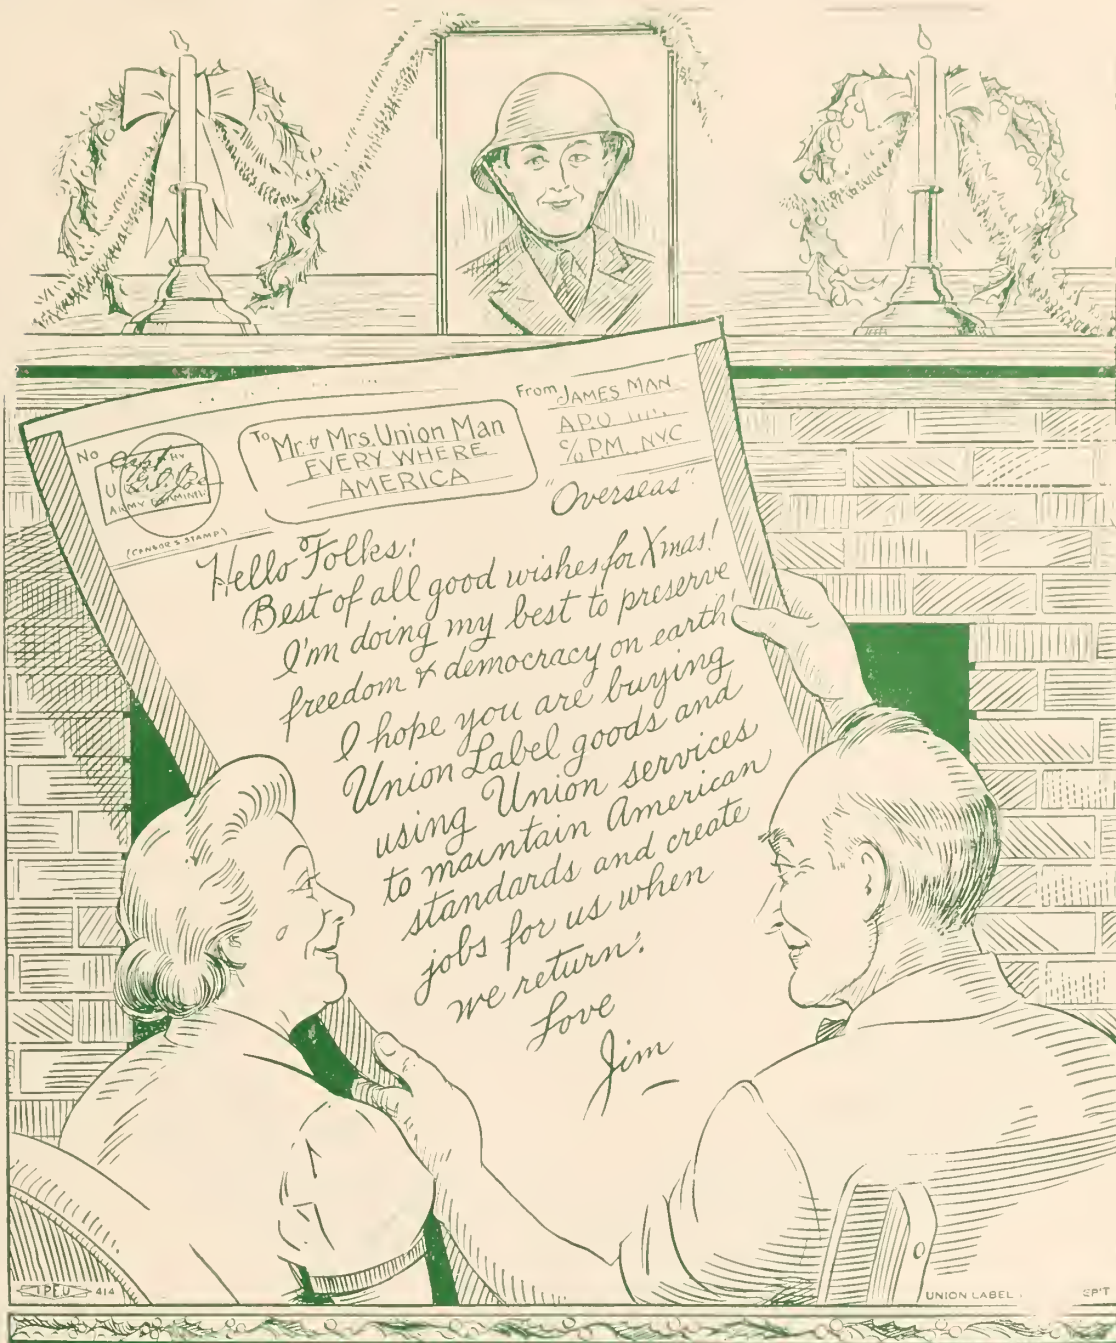 No
U
ARMY EXAMINER
(CENSOR'S STAMP)
To Mr. & Mrs. Union Man
EVERY WHERE
AMERICA
From JAMES MAN
A.P.O.
c/o PM. NYC
"Overseas"
Hello Folks:
Best of all good wishes for Xmas!
I'm doing my best to preserve
freedom & democracy on earth!
I hope you are buying
Union Label goods and
using Union services
to maintain American
standards and create
jobs for us when
we return.
Love
Jim
IPEU 414
UNION LABEL